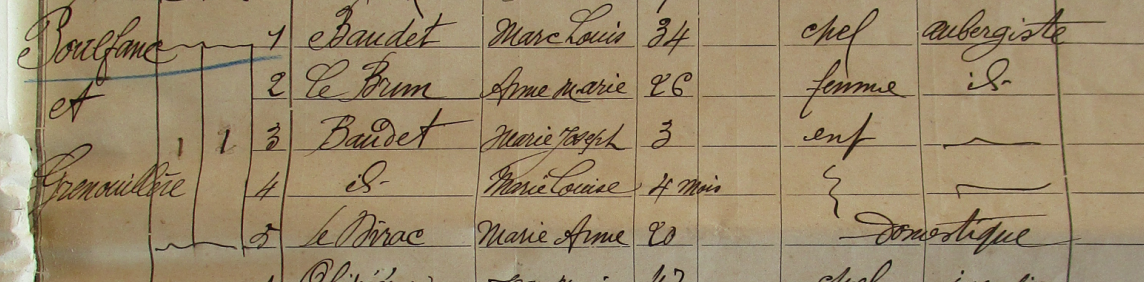 Boulfanc 1 Baudet Marc Louis 34 chef aubergiste
2 Le Brun Anne Marie 26 femme id-
et
1 1 3 Baudet Marie Joseph 3 enf
Grenouillère 4 id- Marie Louise 4 mois
5 Le Marie Anne 20 domestique
chef